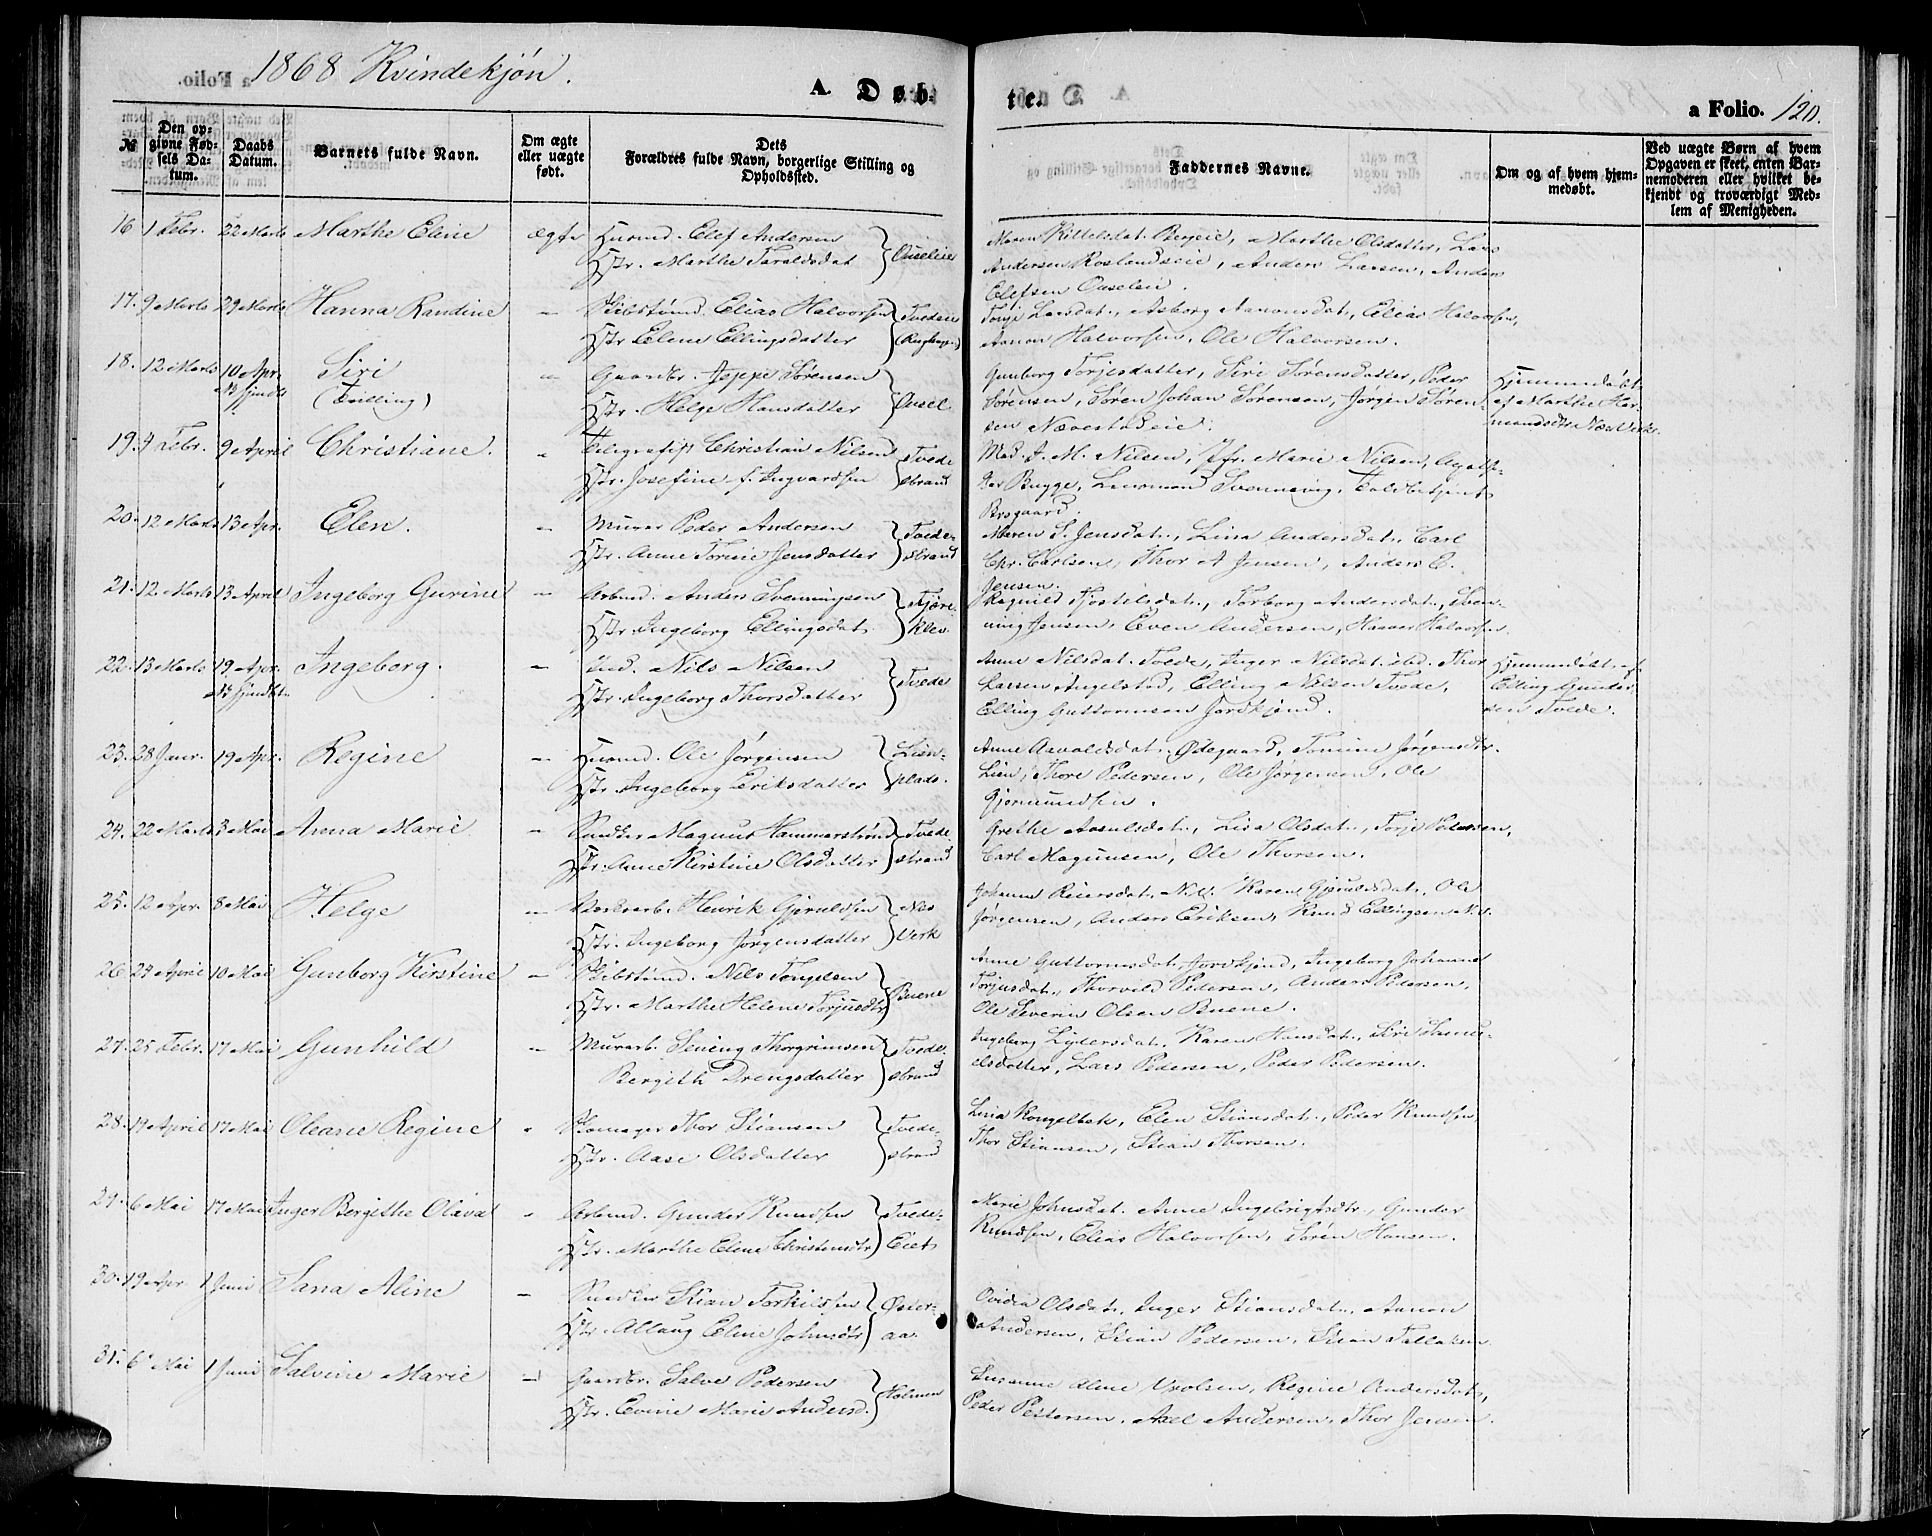 1868 Kvindekjön.
A. Døb-
te.
a Folio. 120.
№
Den op-
givne Fød-
sels Da-
tum.
Daabs
Datum.
Barnets fulde Navn.
Om ægte
eller uægte
født.
Dets
Forældres fulde Navn, borgerlige Stilling og
Opholdssted.
Faddernes Navne.
Om og af hvem hjem-
medøbt.
Ved uægte Børn af hvem
Opgaven er skeet, enten Bar-
nemoderen eller hvilket be-
kjendt og troværdigt Med-
lem af Menigheden.
16 1 Febr. 22 Marts Marthe Eline ægte Husmd. Elef Andersen
Hstr. Marthe Taraldsdat Ouseleie
Maren Kittelsdat. Bergeie, Marthe Olsdatter, Lars
Andersen Roslandseie, Anders Larsen, Anders
Elefsen Ouselei.
17. 9 Marts 29 Marts Hanna Randine - Skibstømd. Elias Halvorsen
Hstr Elene Ellingsdatter Tvedeie
Larsdat., Asborg Aanonsdat., Elias Halvorsen,
Aanon Halvorsen, Ole Halvorsen.
18. 12 Marts 10 Apr. Siri - Gaardbr. Jeppe Sörensen
(Tvilling) Hstr. Helge Hansdatter Ousel.
Gunborg Torjesdatter, Siri Sørensdatter, Peder
Sörensen, Sören Johan Sørensen, Jørgen Sören-
sen Nævestadeie.
Hjemmedøbt
af Marthe Her-
mandsdtr Næs Værk.
19. 4 Febr. 9 April Christiane. - Telegrafist Christian Nilsen
Hstr. Josefine f. Ingvardsen Tvede
strand
Mad. J. M. Nilsen, Jfr. Marie Nilsen, Apothe-
ker Bugge, Lensmand Svenning, Toldbetjent
Brogaard.
20. 12 Marts 13 Apr. Elen. - Murer Peder Andersen
Hstr. Anne Tomine Jensdatter Tvede-
strand
Maren S. Jensdat., Lina Andersdat., Carl
Chr. Carlsen, Thor A Jensen, Anders E.
Jensen.
21. 12 Marts 13 April Ingeborg Gurine - Arbmd. Anders Svenningsen
Hstr. Ingeborg Ellingsdat. Fjære-
klev
Ragnild Tjostelsdat., Torborg Andersdat., Sven-
ning Jensen, Even Andersen, Halvor Halvorsen.
22. 13 Marts 19 Apr. Ingeborg. - Ind. Nils Nilsen
Hstr. Ingeborg Thorsdatter Tvede
Anne Nilsdat. Tvede, Inger Nilsdat. ibd. Thor
Larsen Angelstad, Elling Nilsen Tvede,
Elling Guttormsen Jordkjend.
Hjemmedøbt af
Elling Gunder
sen Tvede.
23. 28 Janr. 19 Apr. Regine - Husmd. Ole Jørgensen
Hstr. Ingeborg Eriksdatter Lien-
plads.
Anne Aavoldsdat. Ødegaard, Tomine Jørgensdtr.
Lien, Thore Pedersen, Ole Jørgensen, Ole
Gjermundsen.
24. 22 Marts 3 Mai Anna Marie - Snedker Magnus Hammerstrønd
Hstr. Anne Kirstine Olsdatter Tvede
strand
Grethe Aasulsdat., Lisa Olsdat., Torje Pedersen,
Carl Magunsen, Ole Thorsen.
25. 12 Apr. 8 Mai Helge - Værkarb. Henrik Gjeruldsen
Hstr. Ingeborg Jörgensdatter Næs
Verk
Johanne Reiersdat. N. V. Karen Gjeruldsdat., Ole
Jørgensen, Anders Eriksen, Knud Ellingsen N. V.
26. 24 April 10 Mai Gunborg Kirstine - Skibstømd. Nils Tengelsen
Hstr. Marthe Helene Torjusdtr Buene
Anne Guttormsdat. Jordkjend, Ingeborg Johanne
Torjusdat., Thorvild Pedersen, Anders Pedersen,
Ole Severin Olsen Buene.
27. 25 Febr. 17 Mai Gunhild - Murarb. Siming Thorgrimsen
Bergith Drengsdatter Tvede-
strand
Ingeborg Lydersdat., Karen Hansdat., Siri Samu-
elsdatter, Lars Pedersen, Peder Pedersen.
28. 19 April 17 Mai Oleane Regine - Skomager Thor Stiansen
Hstr. Aase Olsdatter Tvede-
strand
Lina Kongelbek, Elen Stiansdat., Peder Knudsen,
Thor Stiansen, Stian Thorsen.
29. 6 Mai 17 Mai Inger Bergithe Olava - Arbmd. Gunder Knudsen
Hstr. Marthe Elene Christensdtr Tvede-
Eiet
Marie Johnsdat. Anne Ingebrigtsdtr., Gunder
Knudsen, Elias Halvorsen, Sören Hansen.
30. 19 Apr. 1 Juni Sana Aline - Snedker Stian Torkildsen
Hstr. Allaug Eline Johnsdtr Øster-
aa.
Ovidia Olsdat., Inger Stiansdat., Aanon
Andersen, Stian Pedersen, Stian Tallaksen
31. 6 Mai 1 Juni Salvine Marie - Gaardbr. Salve Pedersen
Hstr. Evine Marie Andersd. Holmen
Susanne Aline Usvolsen, Regine Andersdat.,
Peder Pedersen, Axel Andersen, Thor Jensen.